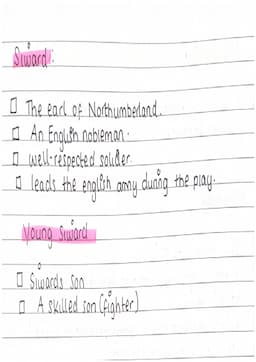 Siward:
□ The earl of Northumberland.
□ An English nobleman.
□ well-respected soldier.
□ leads the english army during the play.
Young Siward
□ Siwards son
□ A skilled son (fighter)